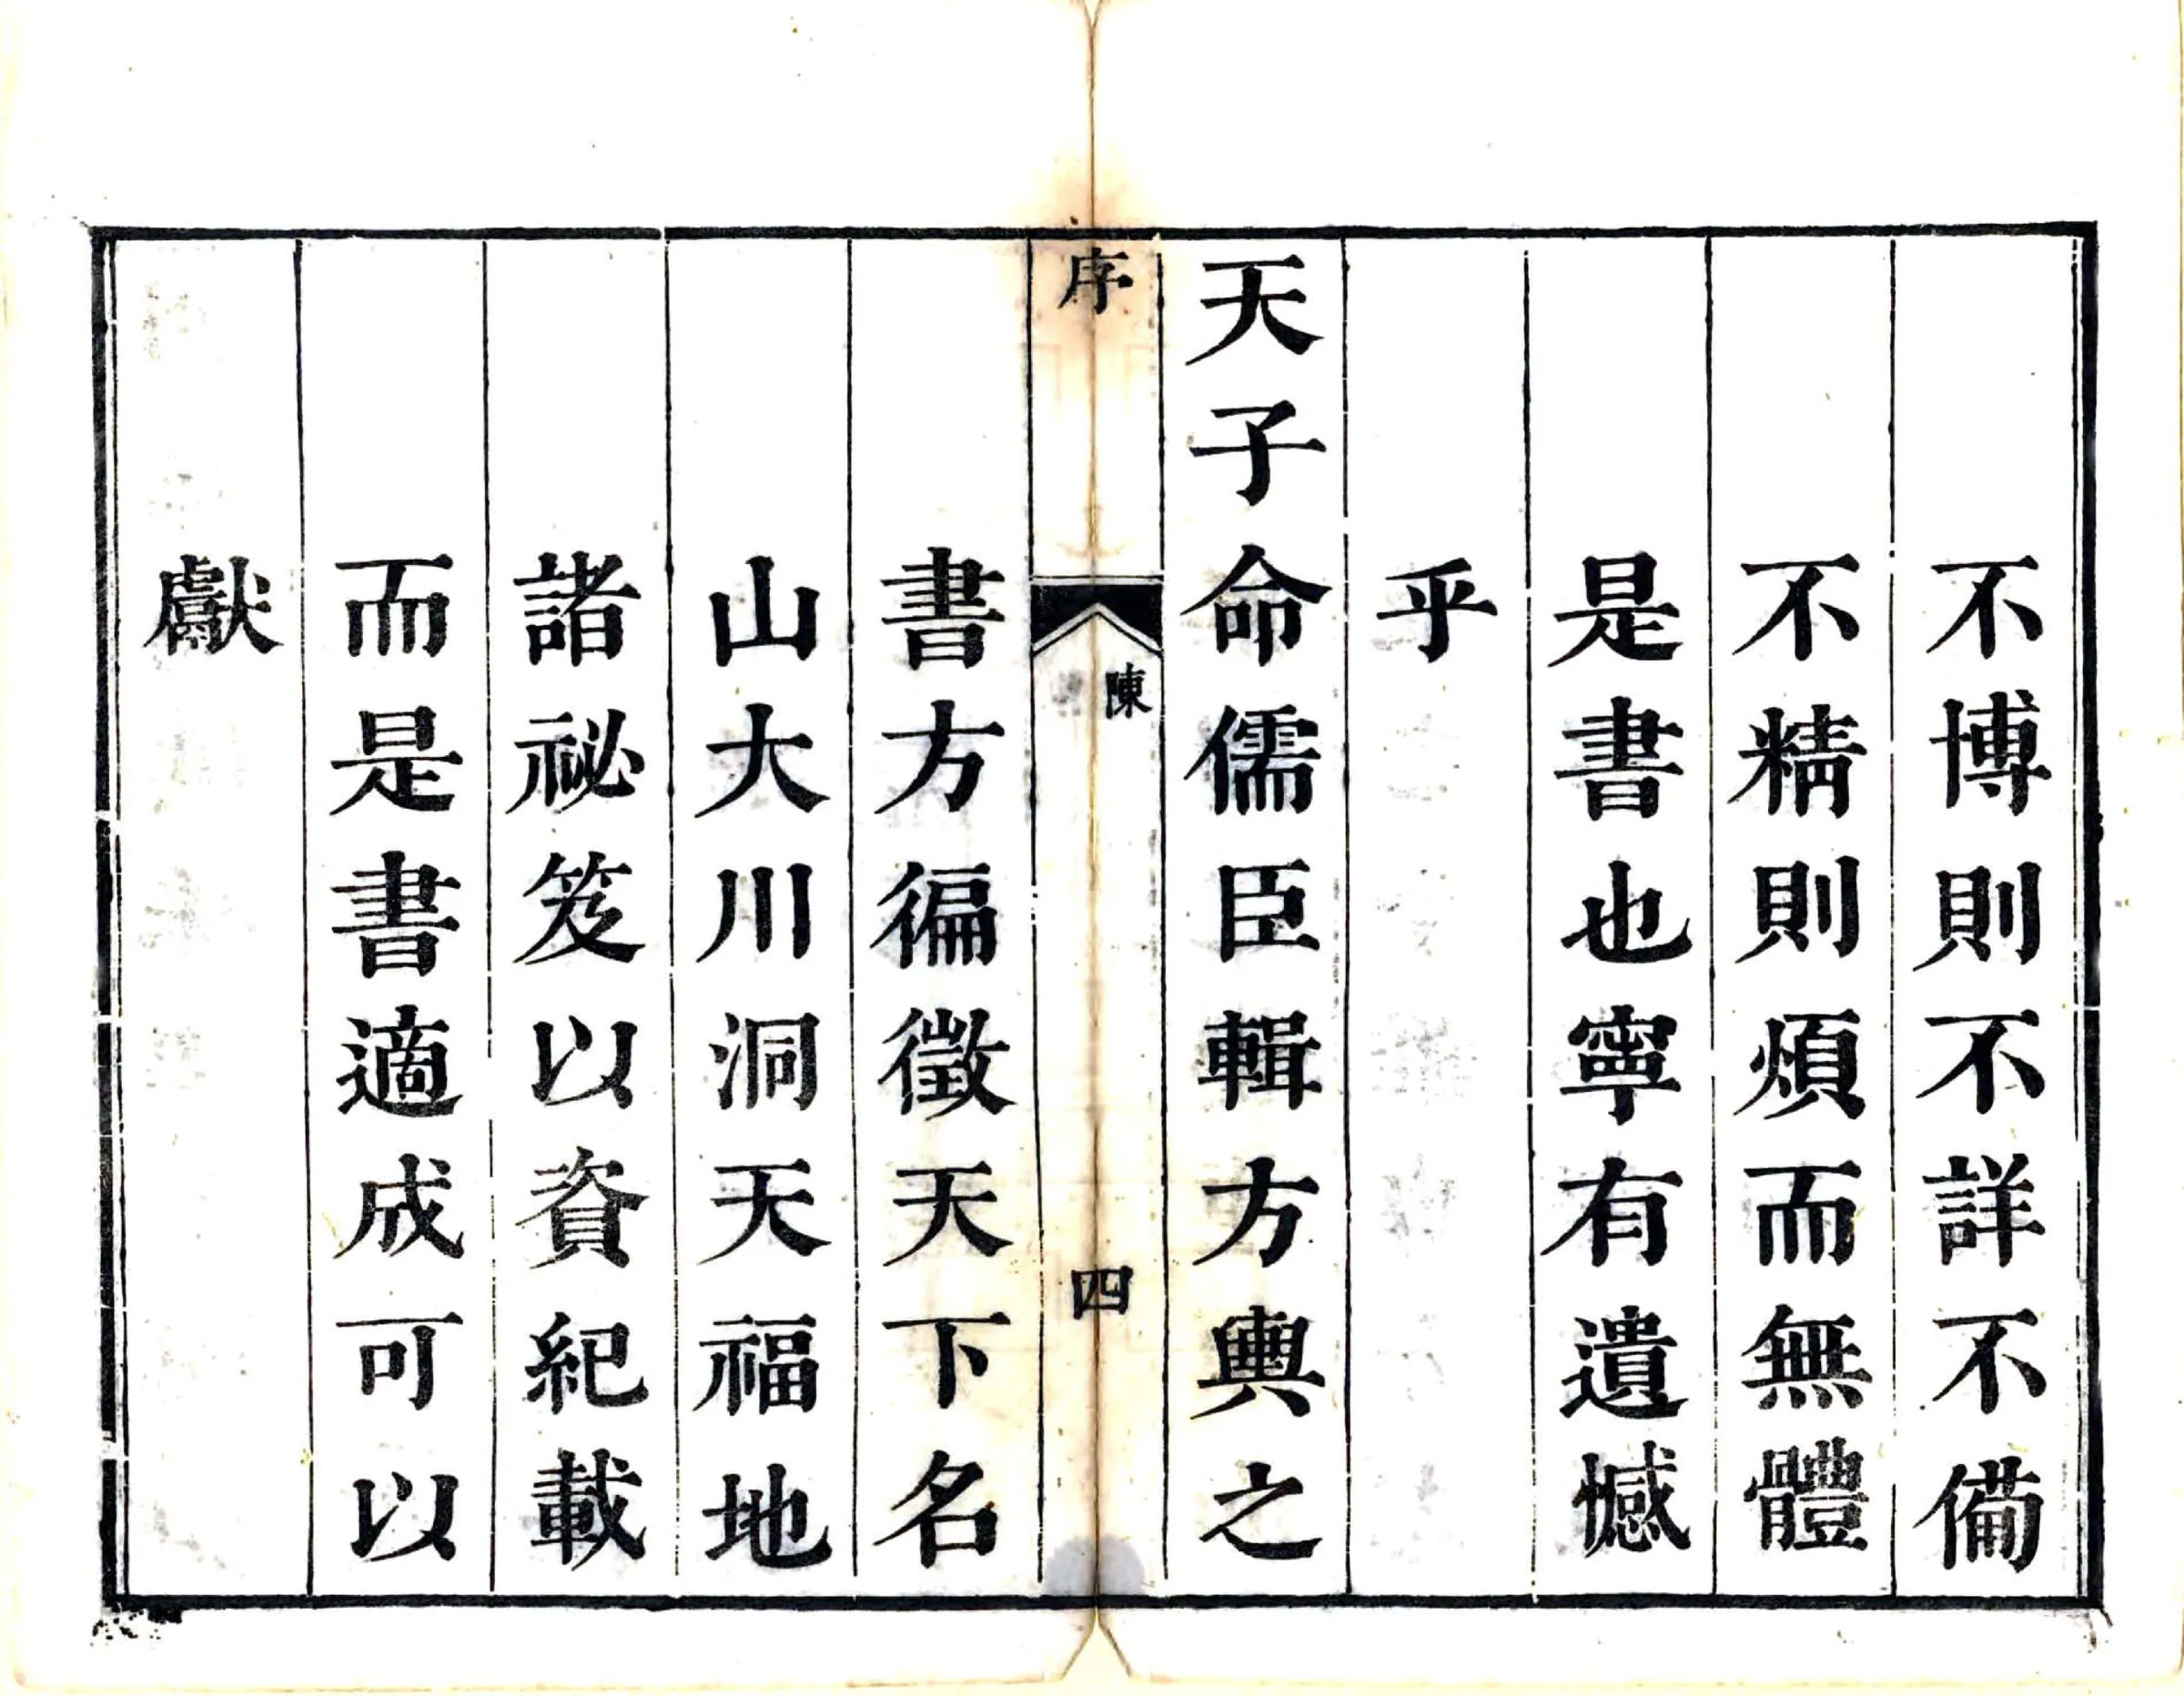 不博則不詳不備
不精則煩而無體
是書也寧有遺憾
乎
天子命儒臣輯方輿之
序
陳
四
書方徧徵天下名
山大川洞天福地
諸祕笈以資紀載
而是書適成可以
獻